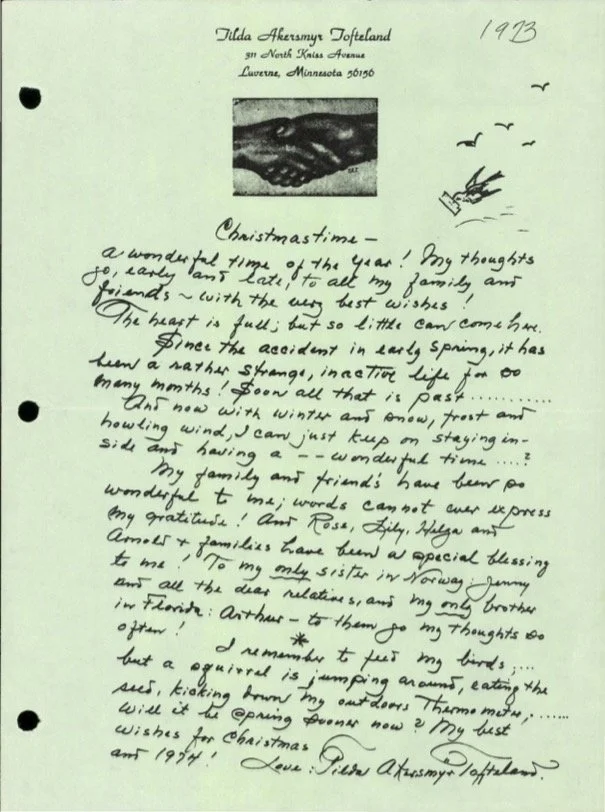 1973
Tilda Akersmyr Tofteland
311 North Kniss Avenue
Luverne, Minnesota 56156
Christmastime —
a wonderful time of the year! My thoughts
go, early and late, to all my family and
friends ~ with the very best wishes!
The heart is full; but so little can come here.
Since the accident in early spring, it has
been a rather strange, inactive life for so
many months! Soon all that is past ..........
And now with winter and snow, frost and
howling wind, I can just keep on staying in-
side and having a -- wonderful time ....?
My family and friends have been so
wonderful to me; words cannot ever express
my gratitude! And Rose, Lily, Helga and
Arnold + families have been a special blessing
to me! To my only sister in Norway: Jenny
and all the dear relatives, and my only brother
in Florida: Arthur — to them go my thoughts so
often!
*
I remember to feed my birds; ...
but a squirrel is jumping around, eating the
seed, kicking down my outdoors Thermometer; ......
Will it be spring sooner now? My best
wishes for Christmas
and 1974! Love: Tilda Akersmyr Tofteland.